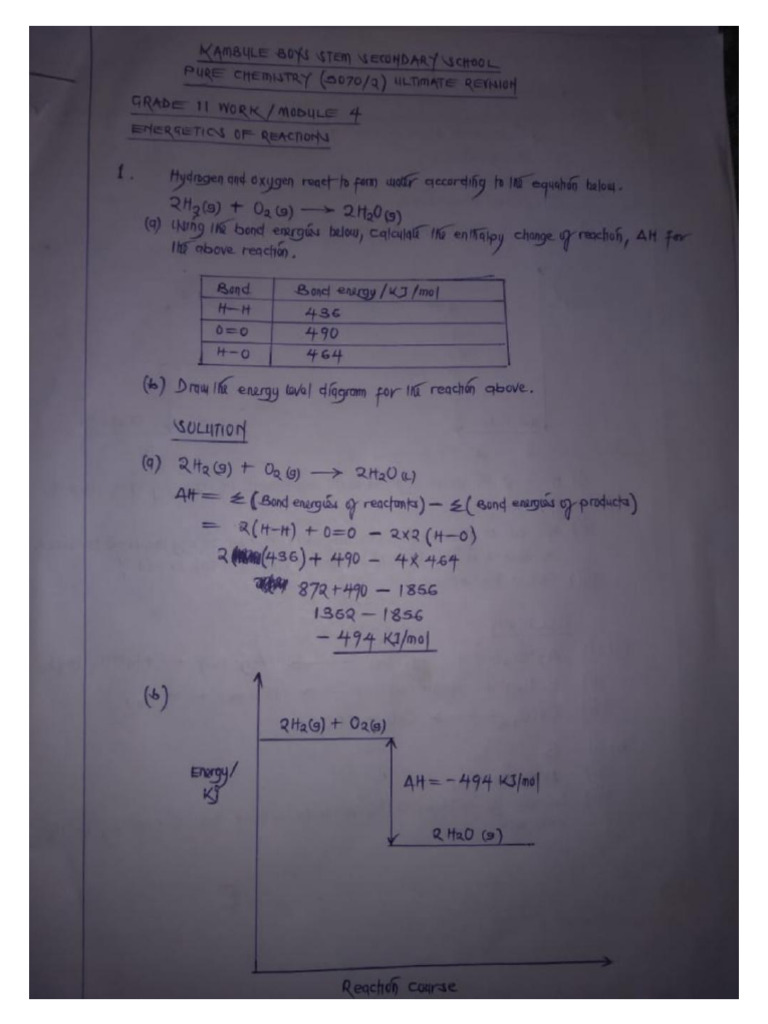 KAMBULE BOYS STEM SECONDARY SCHOOL
PURE CHEMISTRY (5070/2) ULTIMATE REVISION
GRADE 11 WORK/MODULE 4
ENERGETICS OF REACTIONS
1. Hydrogen and oxygen react to form water according to the equation below.
2H₂(g) + O₂(g) → 2H₂O(g)
(a) Using the bond energies below, calculate the enthalpy change of reaction, ΔH for
the above reaction.
Bond Bond energy/KJ/mol
H–H 436
O=O 490
H–O 464
(b) Draw the energy level diagram for the reaction above.
SOLUTION
(a) 2H₂(g) + O₂(g) → 2H₂O(g)
ΔH = Σ(Bond energies of reactants) – Σ(Bond energies of products)
= 2(H–H) + O=O – 2×2(H–O)
2(436) + 490 – 4×464
872 + 490 – 1856
1362 – 1856
– 494 KJ/mol
(b)
2H₂(g) + O₂(g)
Energy/
KJ
ΔH = –494 KJ/mol
2H₂O(g)
Reaction course